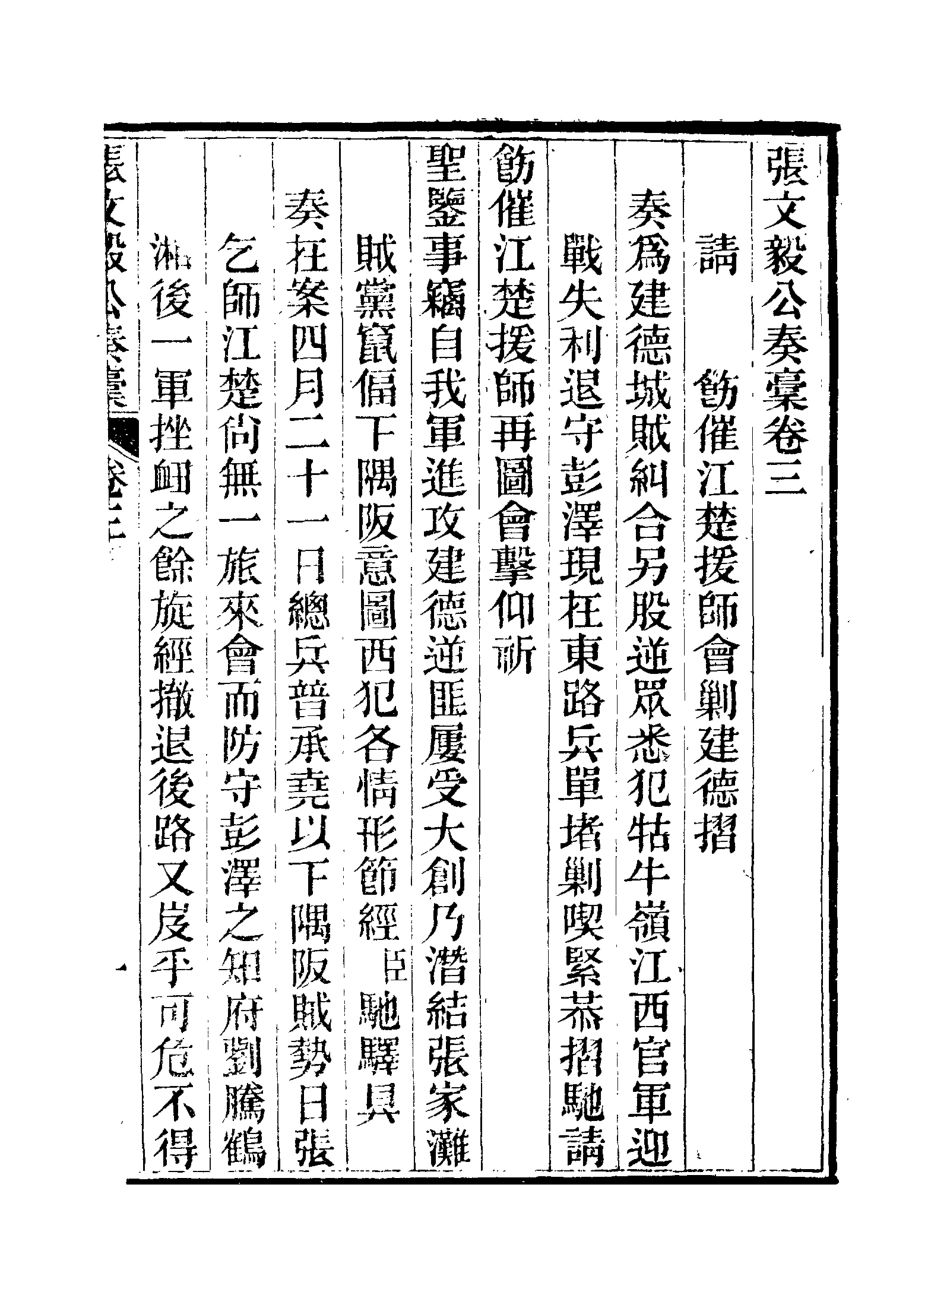 張文毅公奏稾卷三
請 飭催江楚援師會剿建德摺
奏爲建德城賊糾合另股逆眾悉犯牯牛嶺江西官軍迎
戰失利退守彭澤現在東路兵單堵剿喫緊恭摺馳請
飭催江楚援師再圖會擊仰祈
聖鑒事竊自我軍進攻建德逆匪屢受大創乃潛結張家灘
賊黨竄偪下隅阪意圖西犯各情形節經臣馳驛具
奏在案四月二十一日總兵普承堯以下隅阪賊勢日張
乞師江楚尙無一旅來會而防守彭澤之知府劉騰鶴
湘後一軍挫衄之餘旋經撤退後路又岌乎可危不得
張文毅公奏稾 卷三 一